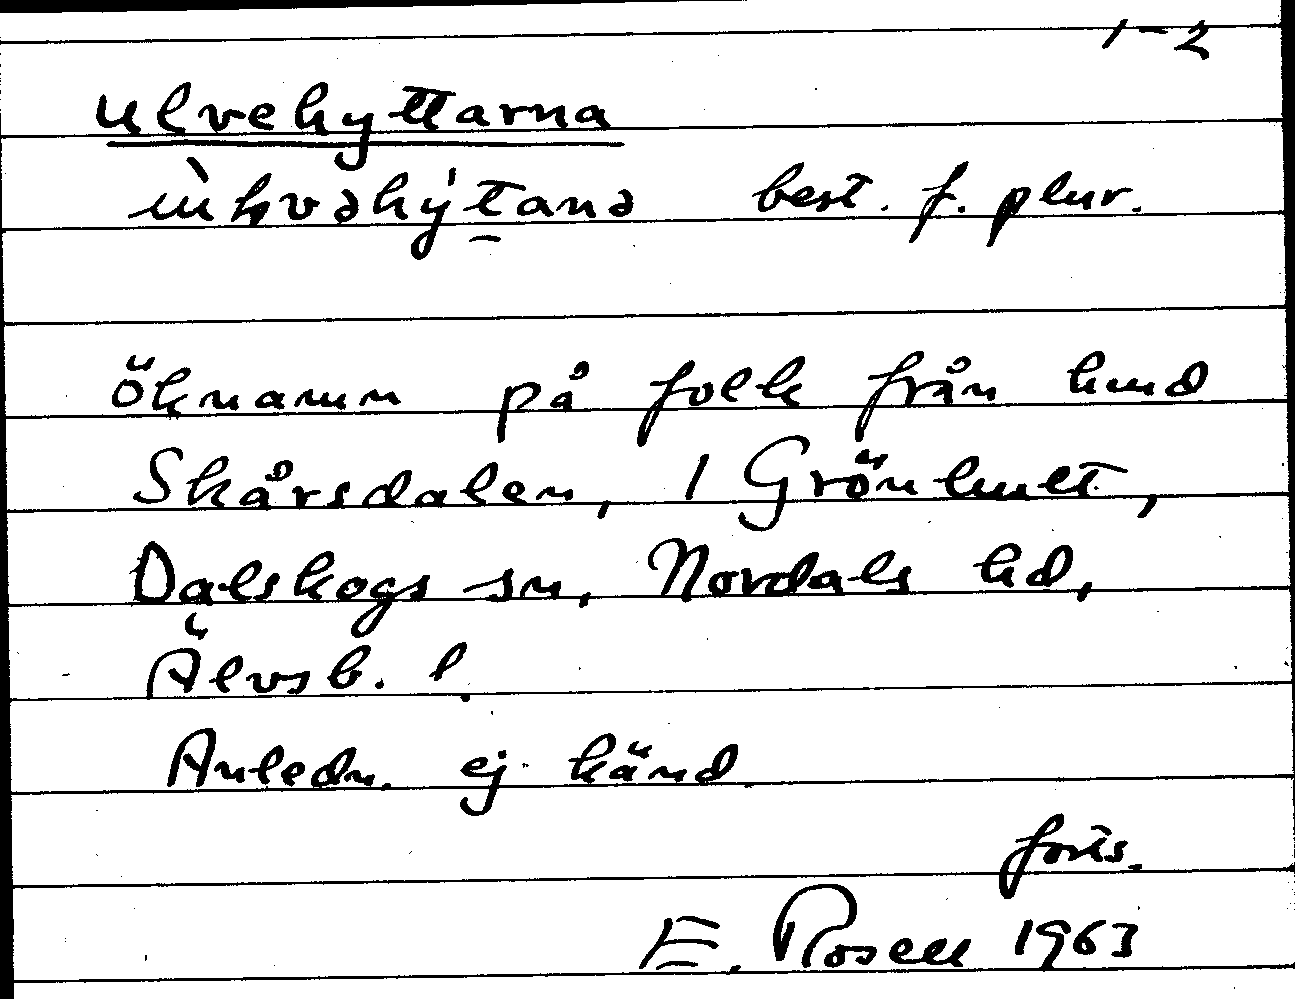 1-2
ulvehyttarna
best. f. plur.
öknamn på folk från hmd
Skårsdalen, 1 Grönhult,
Dalskogs sn, Nordals hd,
Älvsb. l.
Anledn. ej känd.
forts.
E. Rosell 1963